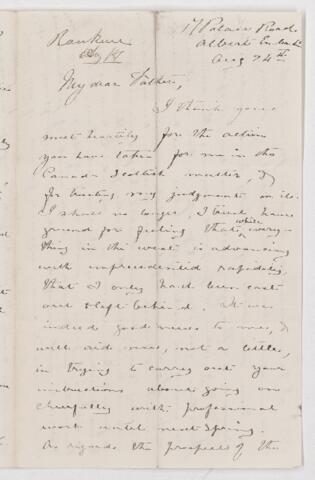 17 Palace Road
Albert Emb.
Aug 24th
Rankine
My dear Father,
I thank you
most heartily for the action
you have taken for me in the
Canada Scottish matter, &
for trusting my judgment on it.
I shall no longer, I trust, have
ground for feeling that while every-
thing in the west is advancing
with unprecedented rapidity,
that I only had been cast
out & left behind. It was
indeed good news to me, &
will aid me, not a little,
in trying to carry out your
instructions about going on
cheerfully with professional
work until next Spring.
As regards the prospects of the